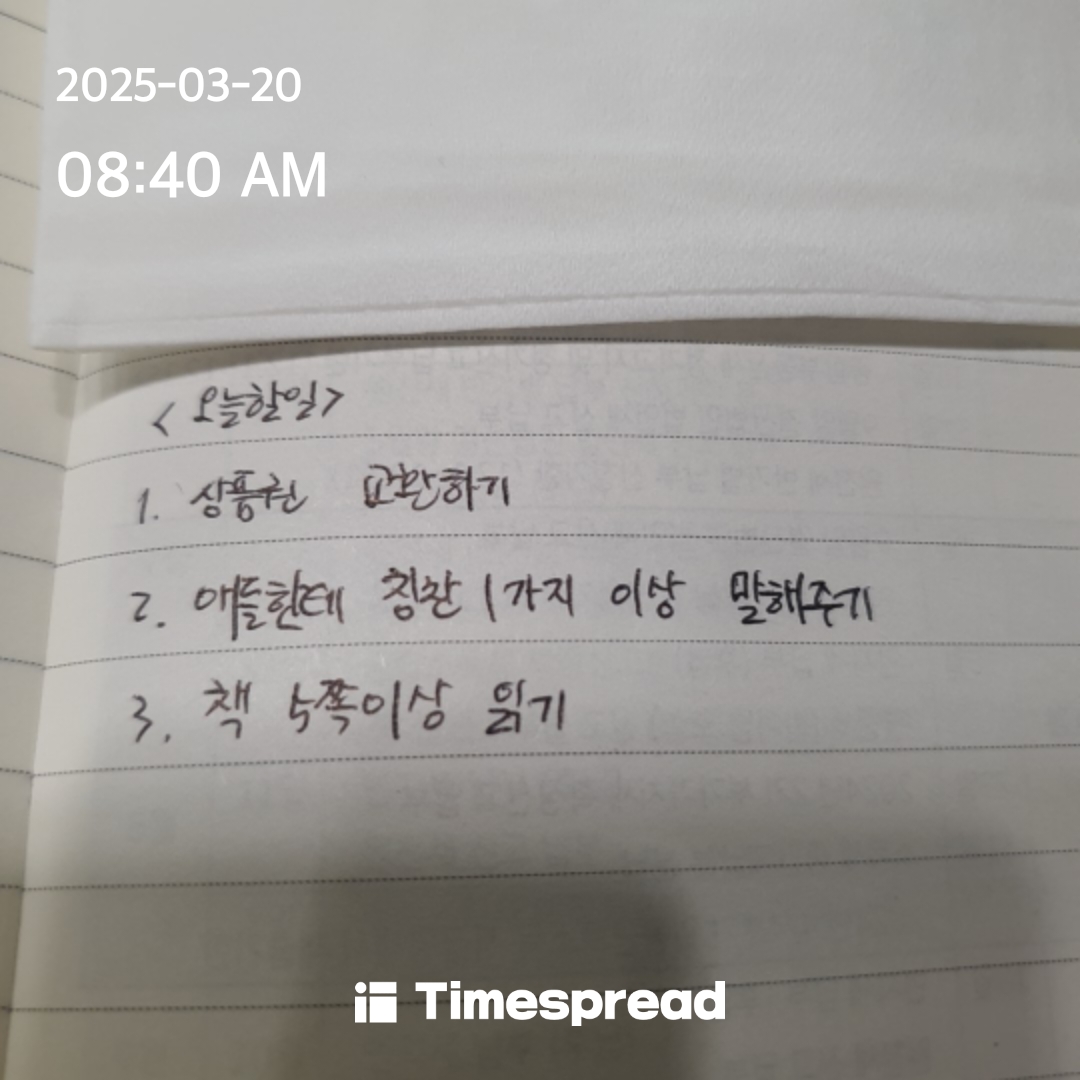 2025-03-20
08:40 AM
<오늘할일>
1. 상품권 교환하기
2. 애들한테 칭찬 1가지 이상 말해주기
3. 책 5쪽이상 읽기
Timespread